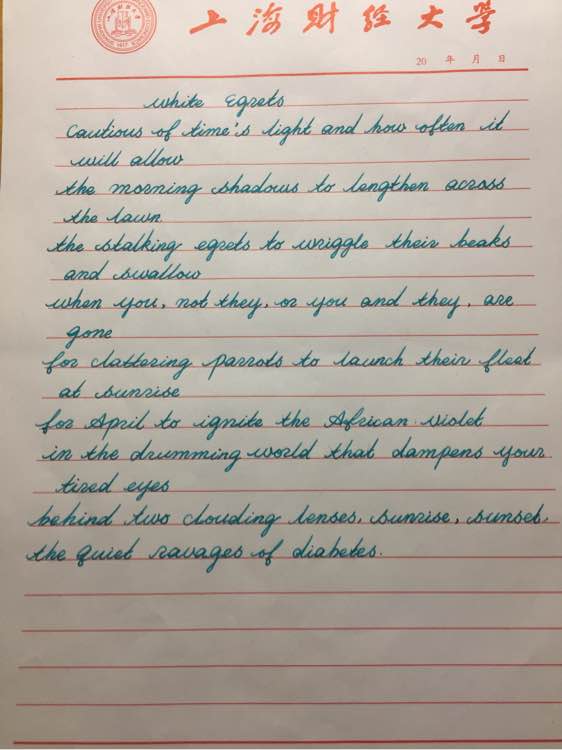 上海财经大学
20 年 月 日
White Egrets
Cautious of time's light and how often it
will allow
the morning shadows to lengthen across
the lawn
the stalking egrets to wriggle their beaks
and swallow
when you, not they, or you and they, are
gone
for clattering parrots to launch their fleet
at sunrise
for April to ignite the African violet
in the drumming world that dampens your
tired eyes
behind two clouding lenses, sunrise, sunset,
the quiet ravages of diabetes.